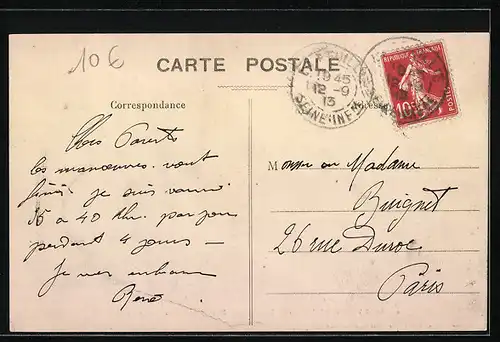 10 €
CARTE POSTALE
Correspondance
Adresse
1945
12 - 9
13
SEINE-INFRE
REPUBLIQUE FRANÇAISE
10
POSTES
Chers Parents
les manœuvres vont
finir je suis vanné
35 a 40 Km. par jour
pendant 4 jours —
Je vous embrasse
René
Monsieur Madame
Buignet
26 rue Duroc
Paris